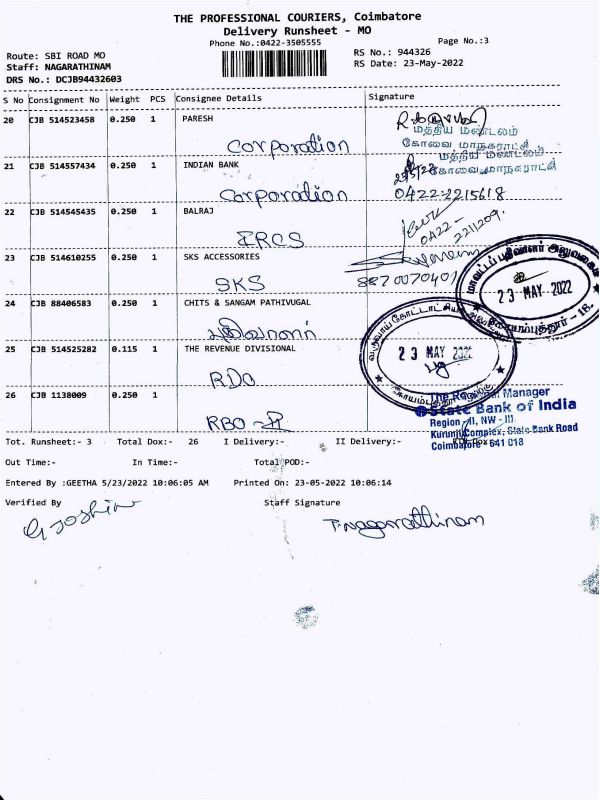 THE PROFESSIONAL COURIERS, Coimbatore
Delivery Runsheet - MO
Phone No.:0422-3505555
Page No.:3
Route: SBI ROAD MO
RS No.: 944326
Staff: NAGARATHINAM
RS Date: 23-May-2022
DRS No.: DCJB94432603
S No Consignment No Weight PCS Consignee Details Signature
20 CJB 514523458 0.250 1 PARESH
மத்திய மண்டலம்
Corporation கோவை மாநகராட்சி
21 CJB 514557434 0.250 1 INDIAN BANK
மத்திய மண்டலம்
கோவை மாநகராட்சி
Corporation 0422-2215618
22 CJB 514545435 0.250 1 BALRAJ
0422-
2211209.
IRCS
23 CJB 514610255 0.250 1 SKS ACCESSORIES
SKS 8870070401
24 CJB 88406583 0.250 1 CHITS & SANGAM PATHIVUGAL
23 MAY 2022
25 CJB 514525282 0.115 1 THE REVENUE DIVISIONAL
23 MAY 2022
RDO
26 CJB 1138009 0.250 1
RBO - II
The Regional Manager
State Bank of India
Region - II, NW - III
Kurunji Complex, State Bank Road
Coimbatore - 641 018
Tot. Runsheet:- 3 Total Dox:- 26 I Delivery:- II Delivery:-
Out Time:- In Time:- Total POD:-
Entered By :GEETHA 5/23/2022 10:06:05 AM Printed On: 23-05-2022 10:06:14
Verified By Staff Signature
T.Nagarathinam